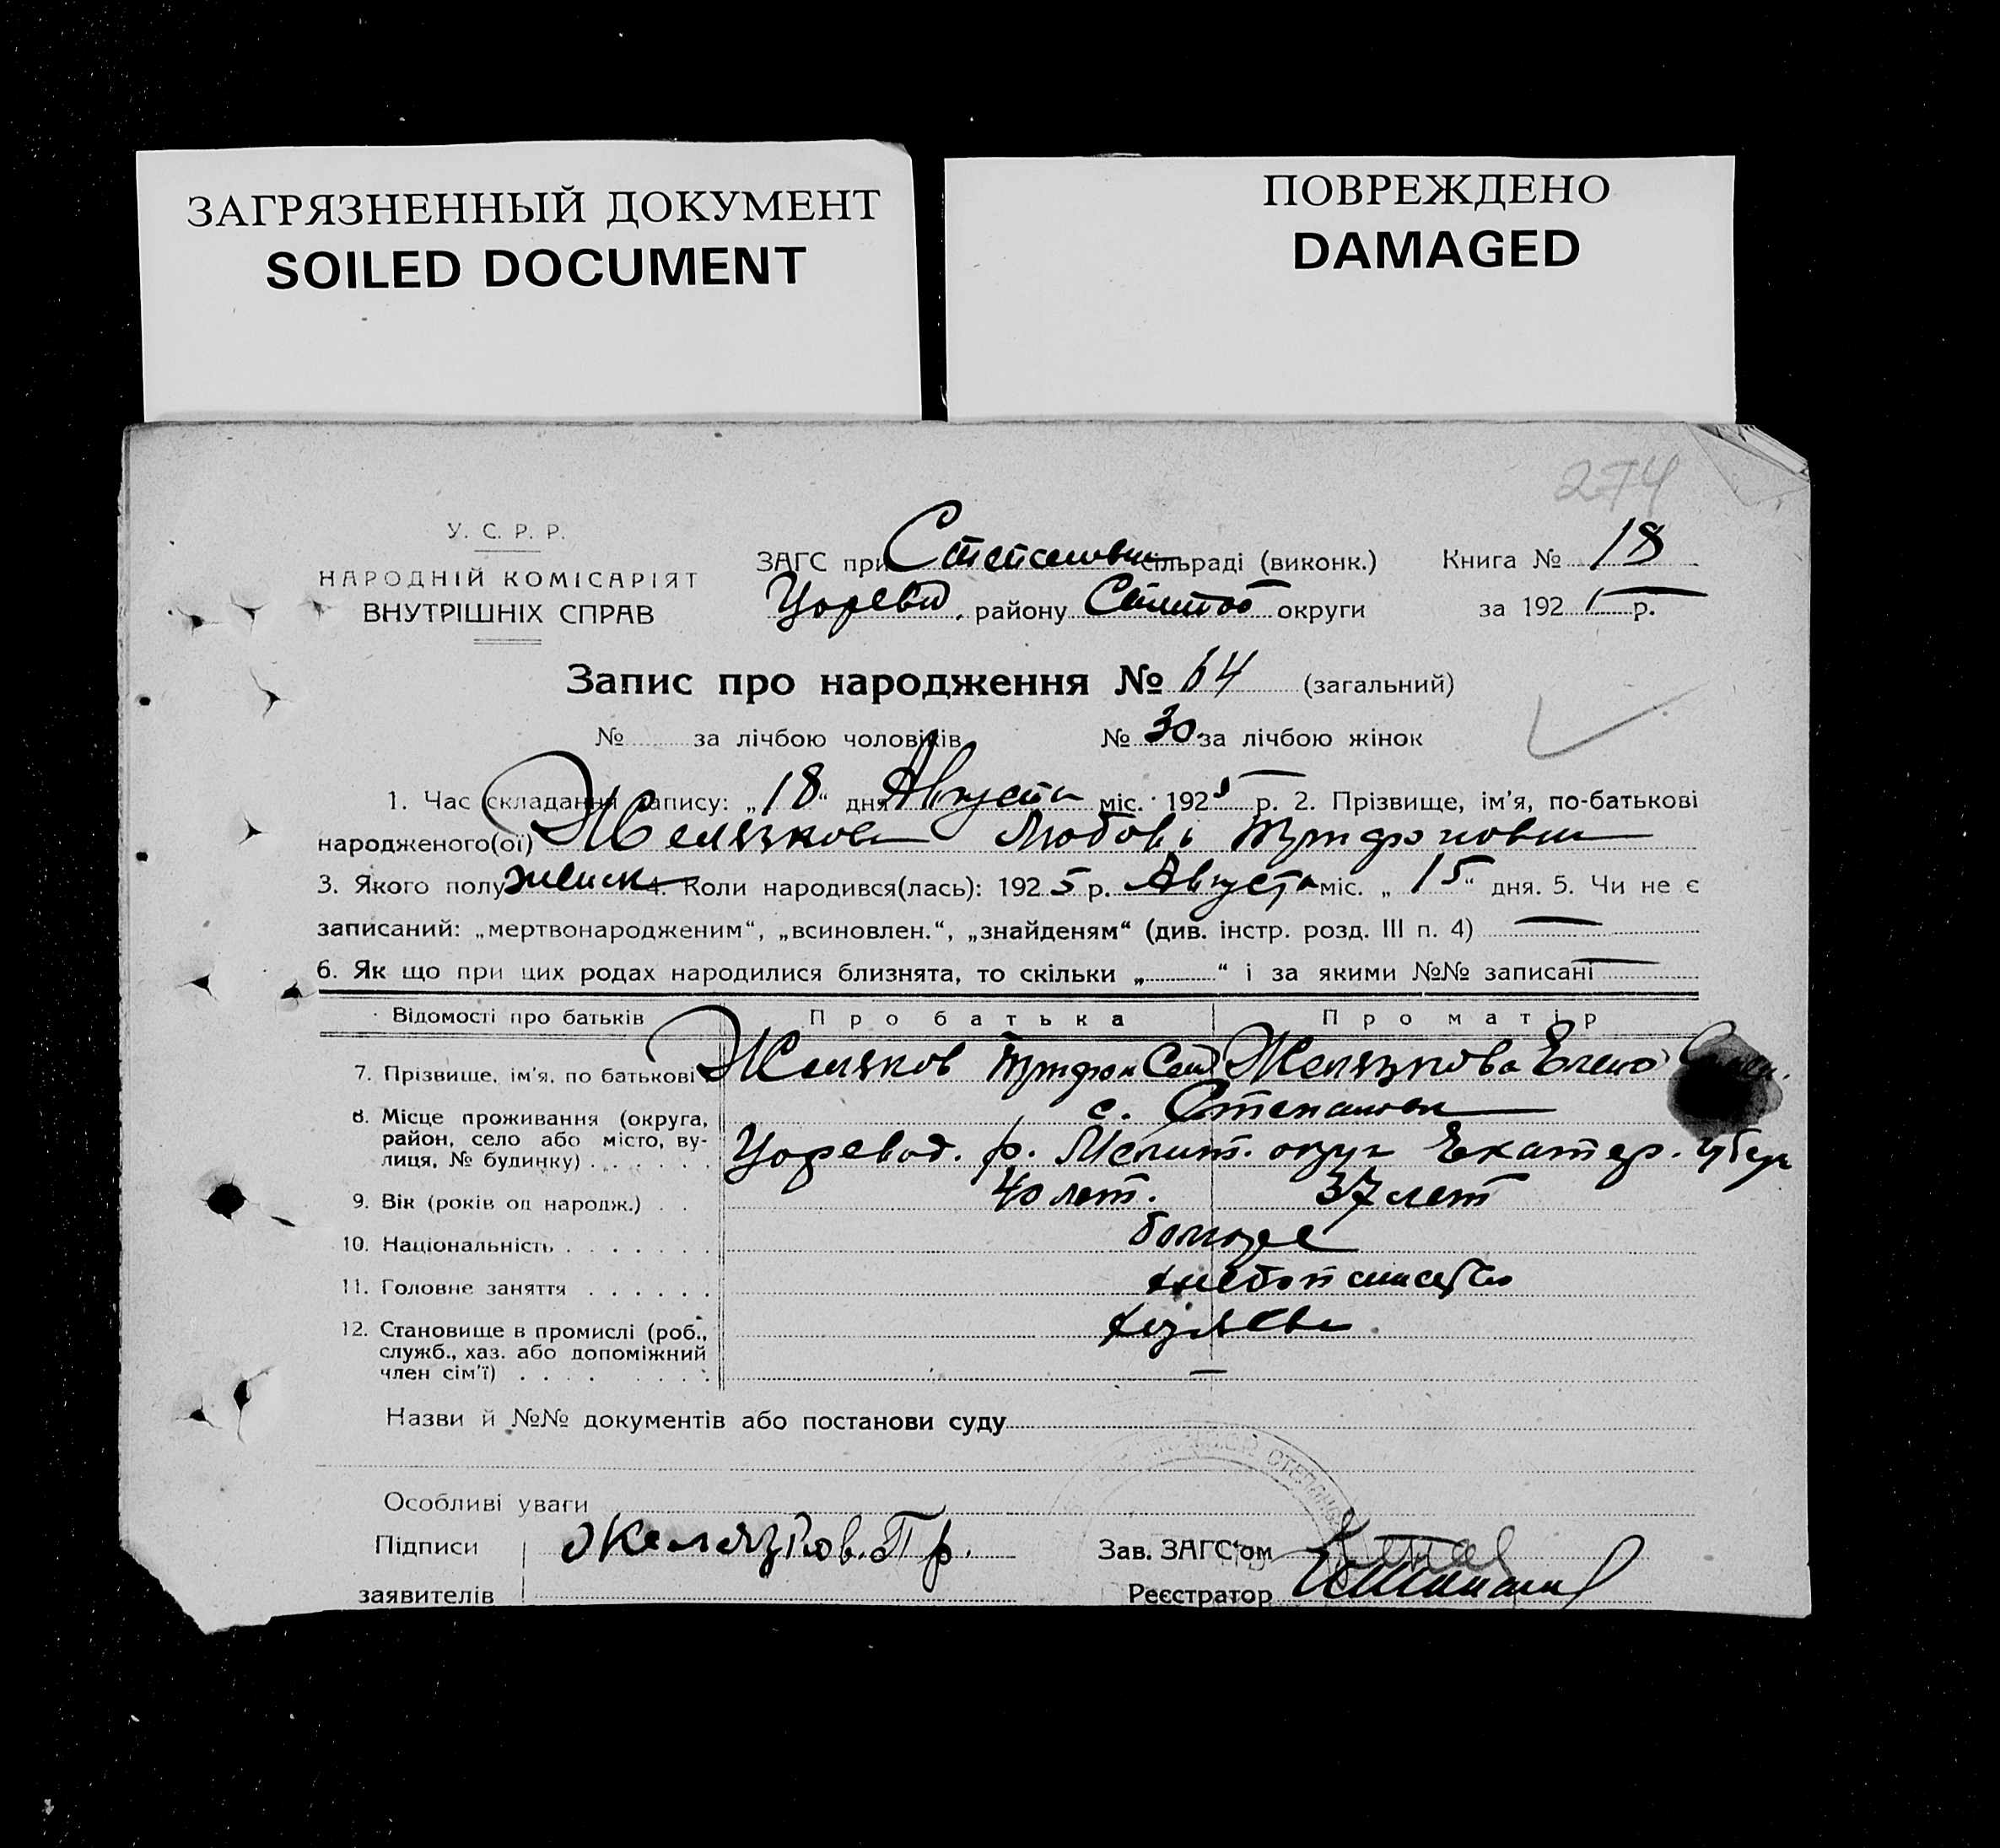 ЗАГРЯЗНЕННЫЙ ДОКУМЕНТ
SOILED DOCUMENT
ПОВРЕЖДЕНО
DAMAGED
274
У. С. Р. Р.
НАРОДНІЙ КОМІСАРІЯТ
ВНУТРІШНІХ СПРАВ
ЗАГС при сільраді (виконк.)
Царевод. району округи
Книга № 18
за 192 р.
Запис про народження № 64 (загальний)
№ за лічбою чоловіків № 30 за лічбою жінок
1. Час складання запису: „18“ дня Августа міс. 1925 р. 2. Прізвище, ім'я, по-батькові
народженого(ої) Желязкова Любовь Трифоновна
3. Якого полу женск 4. Коли народився(лась): 1925 р. Августа міс. „15“ дня. 5. Чи не є
записаний: „мертвонародженим“, „всиновлен.“, „знайденям“ (див. інстр. розд. III п. 4) —
6. Як що при цих родах народилися близнята, то скільки „ “ і за якими №№ записані —
Відомості про батьків Про батька Про матір
7. Прізвище, ім'я, по батькові Желязков Трифон Желязкова Елена
8. Місце проживання (округа, район, село або місто, вулиця, № будинку) с. Степановка
Царевод. р. Мелит. округ Екатер. губер
9. Вік (років од народж.) 40 лет. 37 лет
10. Національність болгаре
11. Головне заняття хлебопашество
12. Становище в промислі (роб., служб., хаз. або допоміжний член сім'ї) хозяева
—
Назви й №№ документів або постанови суду
Особливі уваги
Підписи заявителів Желязков. Тр.
Зав. ЗАГС'ом
Реєстратор